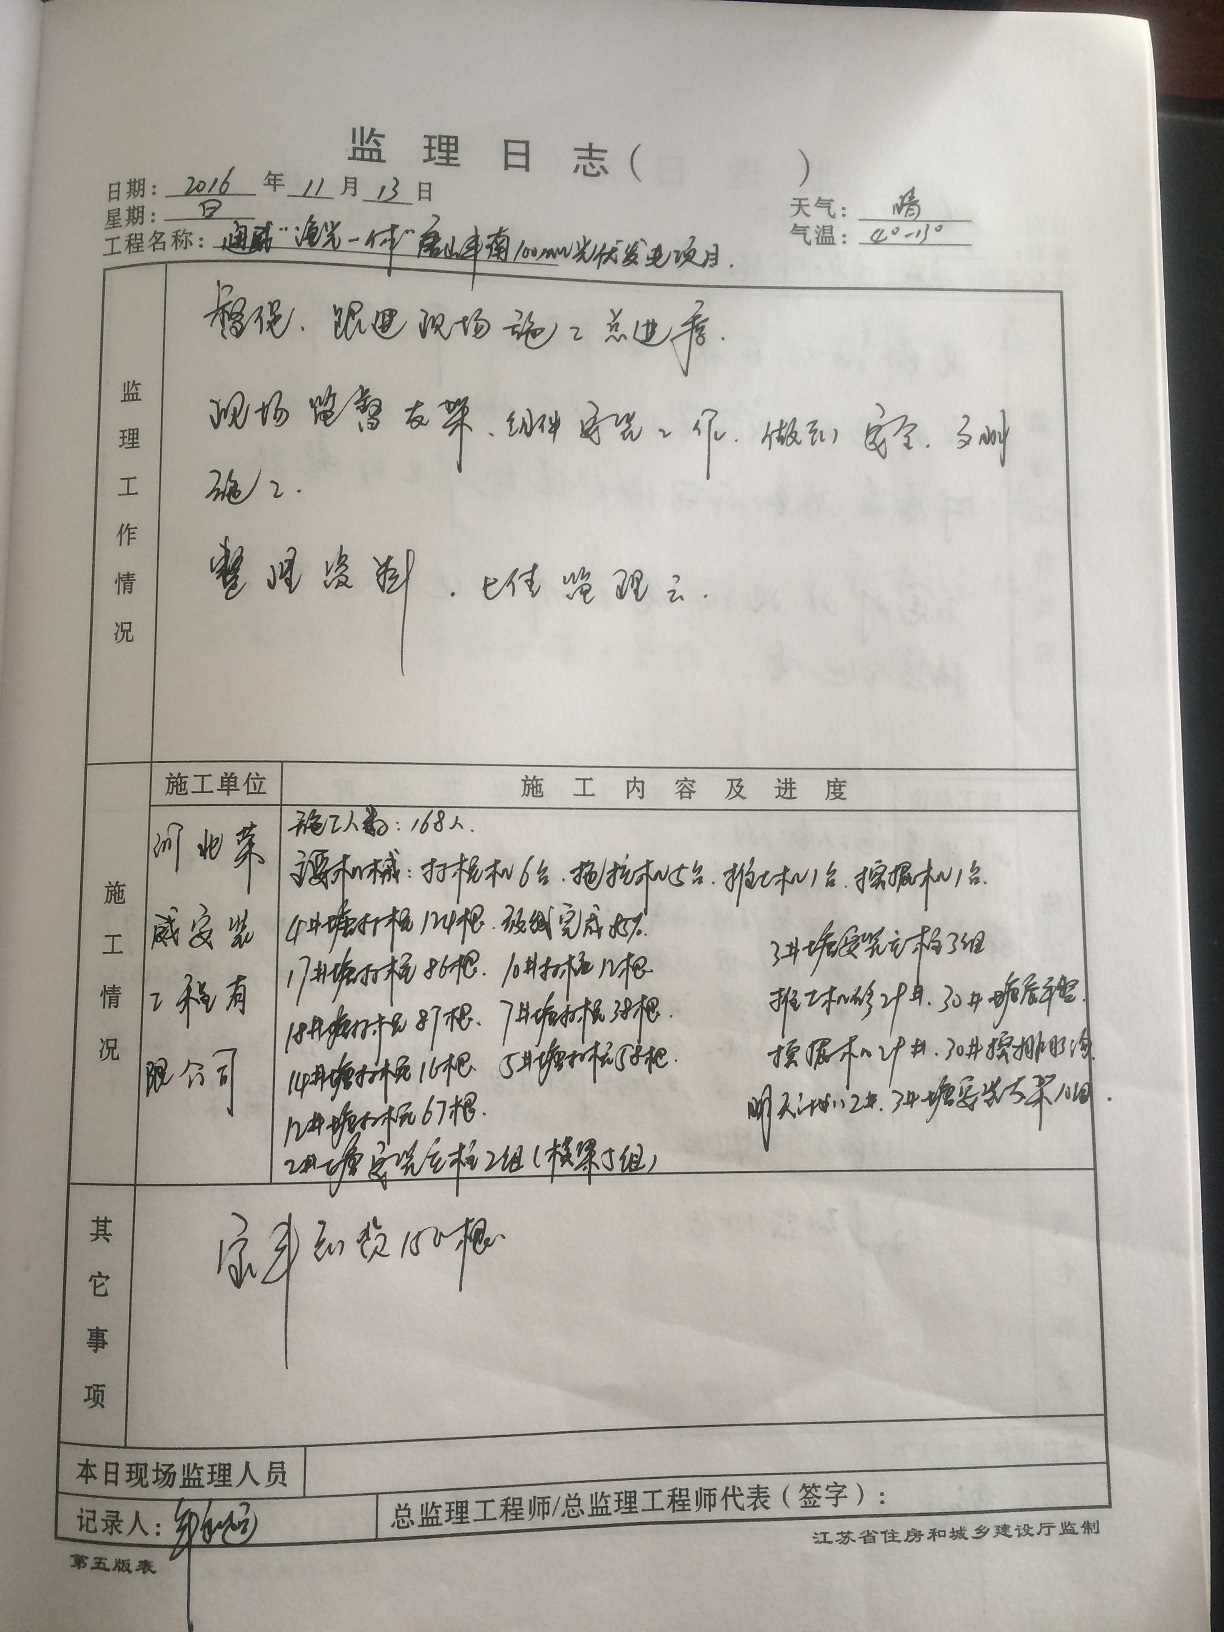 监理日志（ ）
日期：2016年11月13日
星期：日
天气：晴
气温：4°-13°
工程名称：通威"渔光一体"唐山丰南100mw光伏发电项目.
监理工作情况
督促、跟进现场施工总进度.
现场监督支架、组件安装工作. 做到安全、文明
施工.
整理资料. 上传监理云.
施工单位
施工内容及进度
施工情况
河北荣
威安装
工程有
限公司
施工人数：168人.
主要机械：打桩机6台. 拖拉机5台. 推土机1台. 挖掘机1台.
4#塘打桩124根. 放线完成85%.
17#塘打桩86根. 10#打桩12根.
18#塘打桩87根. 7#塘打桩38根.
14#塘打桩16根. 5#塘打桩58根.
12#塘打桩67根.
2#塘安装立柱2组(横梁5组)
3#塘安装立柱3组
推土机修29#. 30#塘
挖掘机29#. 30#挖排水沟.
明天计划2#. 3#塘安装支架10组.
其它事项
到货150根.
本日现场监理人员
记录人：
总监理工程师/总监理工程师代表（签字）：
第五版表
江苏省住房和城乡建设厅监制